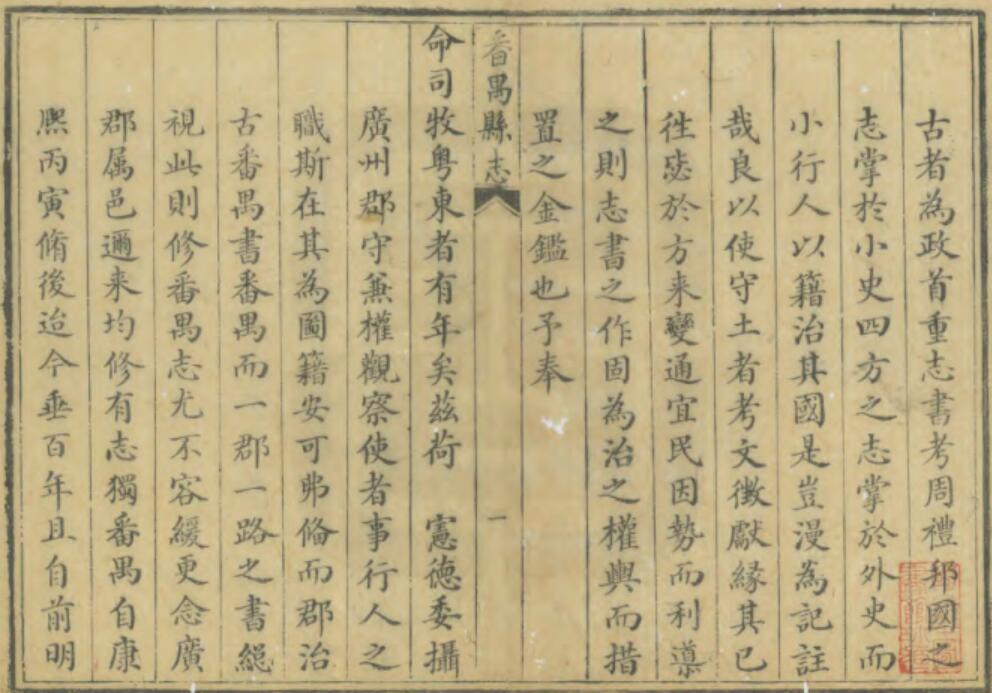 古者為政首重志書考周禮邦國之
志掌於小史四方之志掌於外史而
小行人以籍治其國是豈漫為記註
哉良以使守土者考文徵獻緣其已
徃毖於方来變通宜民因勢而利導
之則志書之作固為治之權輿而措
置之金鑑也予奉
番禺縣志 一
命司牧粤東者有年矣茲荷 憲德委攝
廣州郡守兼權觀察使者事行人之
職斯在其為圖籍安可弗俻而郡治
古番禺書番禺而一郡一路之書緫
視此則修番禺志尤不容緩更念廣
郡属邑邇来均修有志獨番禺自康
熈丙寅脩後迨今垂百年且自前明